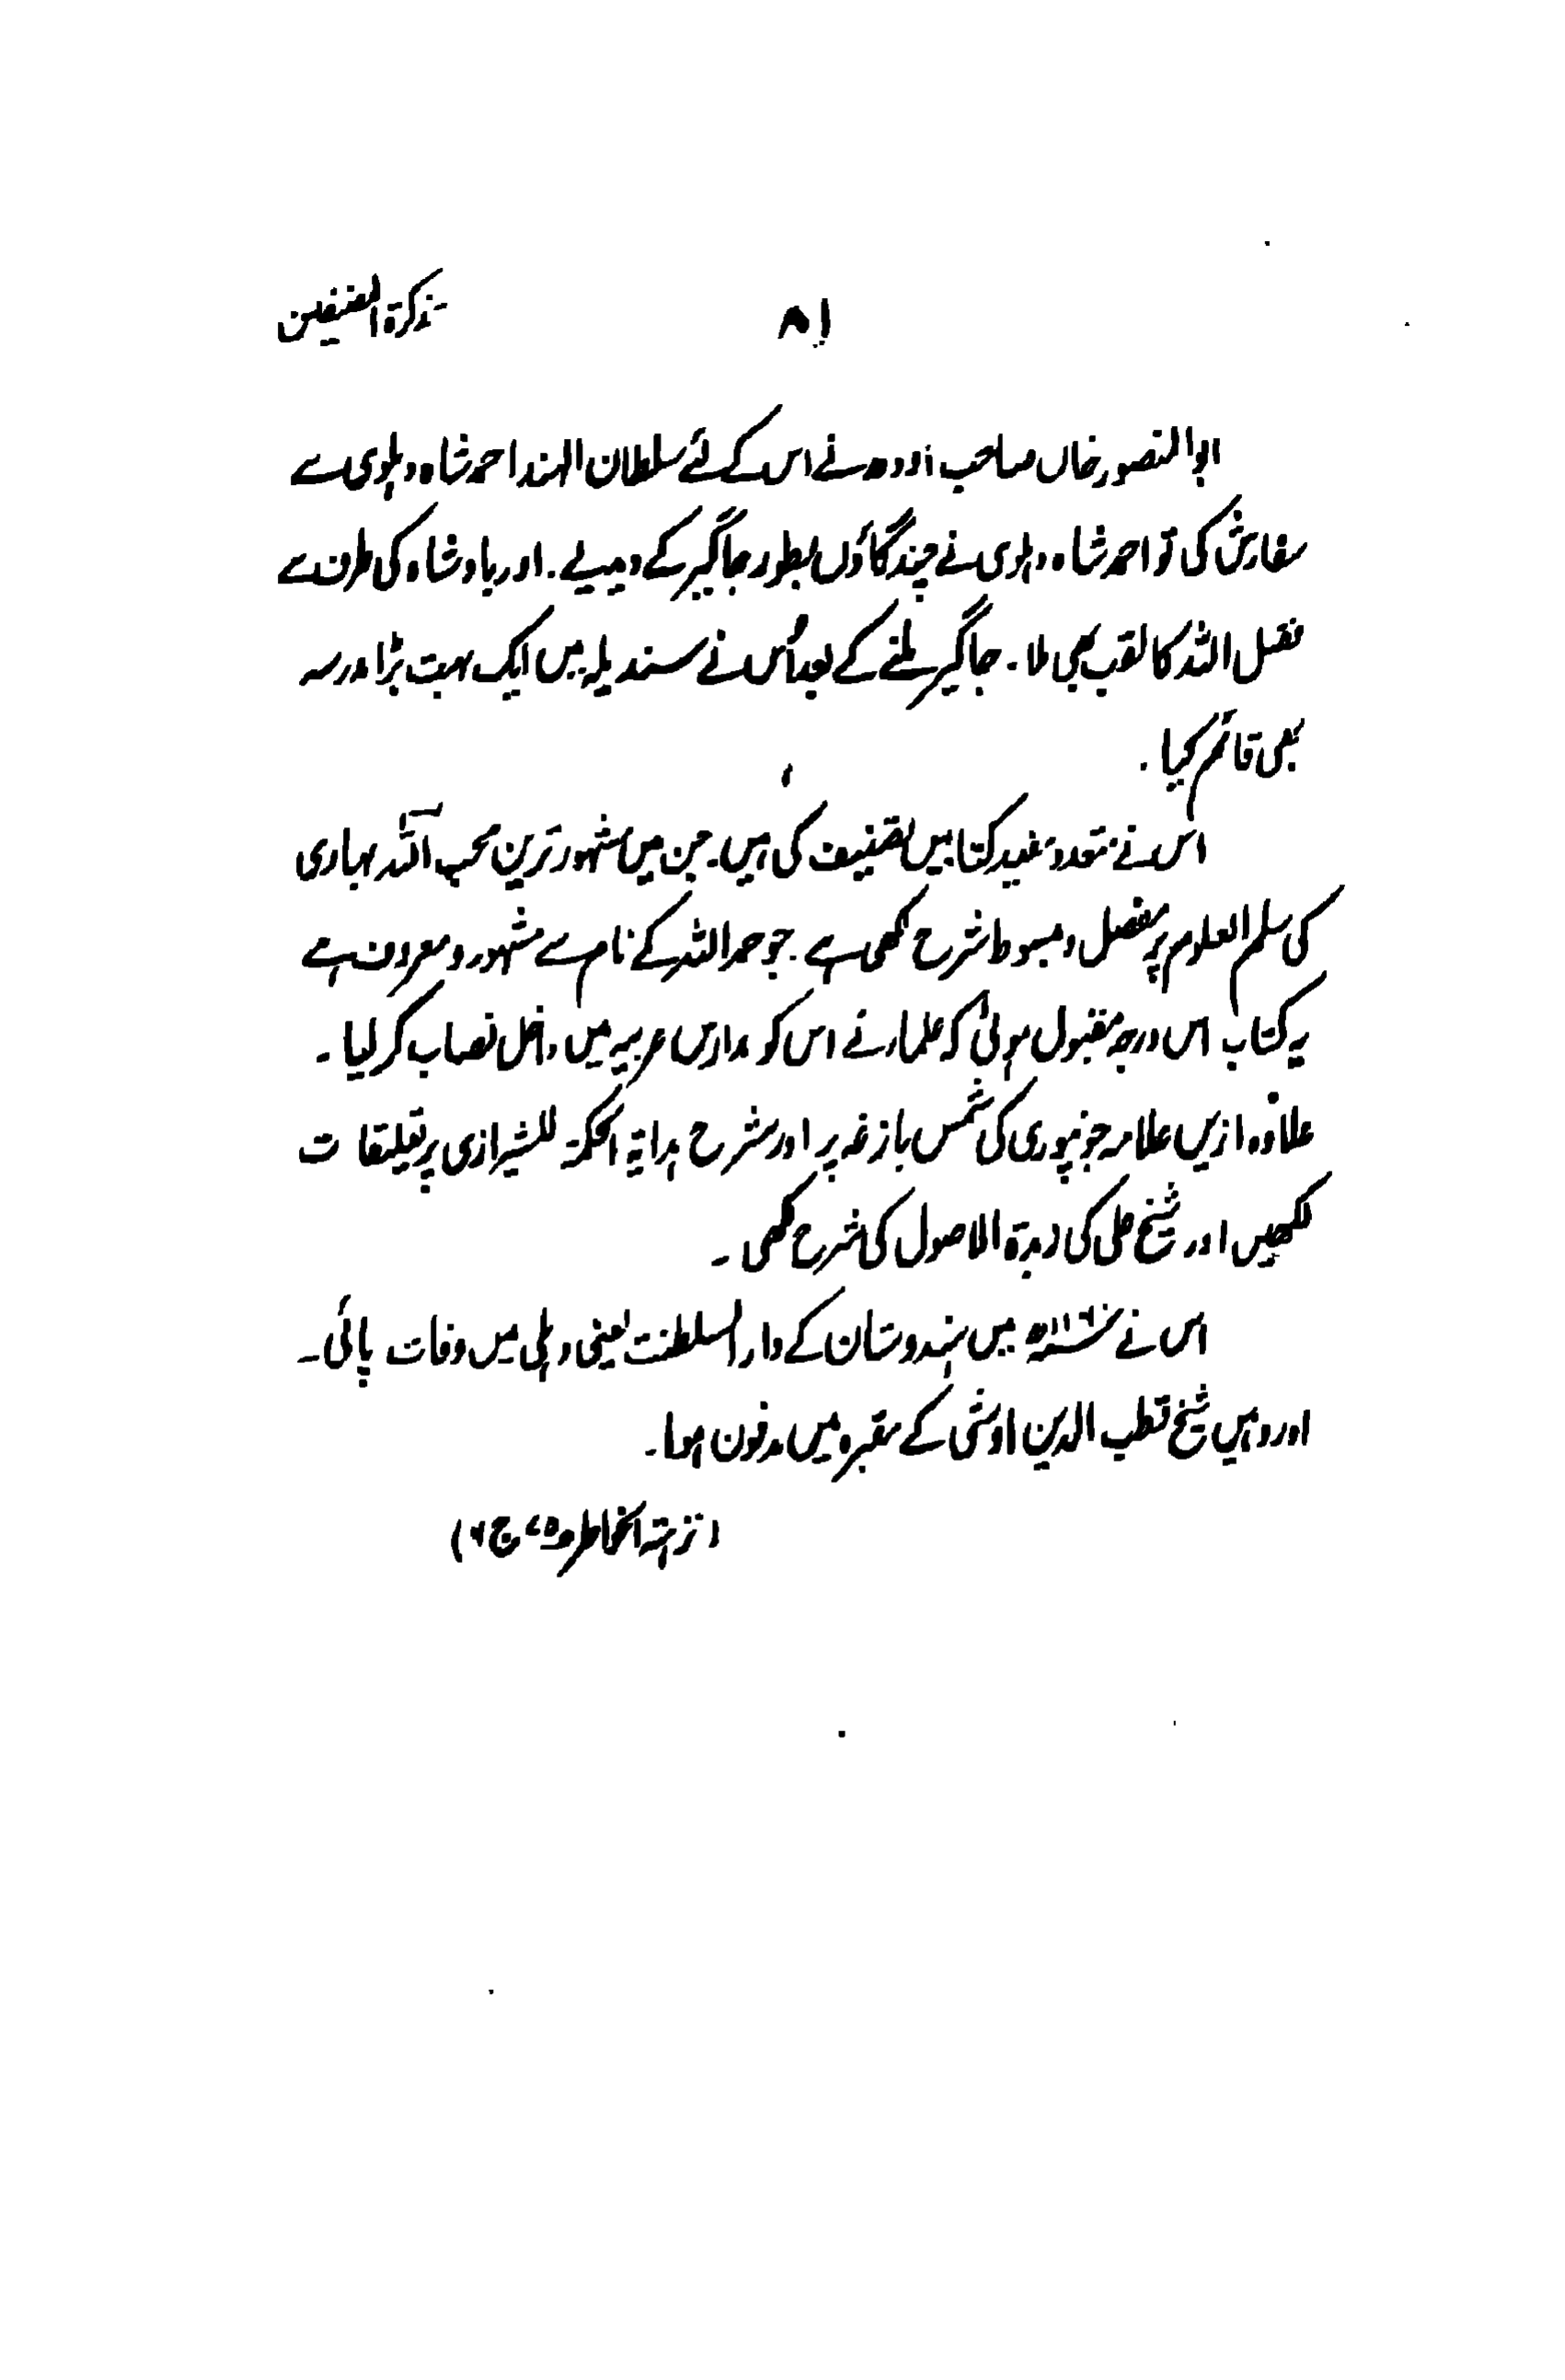 تذکرۃ المصنفین
۸۱
ابو المنصور خاں صاحب اودھ نے اس کے لئے سلطان الہند احمد شاہ دہلوی سے
سفارش کی تو احمد شاہ دہلوی نے چند گاؤں بطور جاگیر کے دیدیے . اور بادشاہ کی طرف سے
فضل اللہ کا لقب بھی ملا . جاگیر ملنے کے بعد اُس نے سندیلہ میں ایک بہت بڑا مدرسہ
بھی قائم کیا .
اس نے متعدد مفید کتابیں تصنیف کی ہیں . جن میں مشہور ترین محب اللہ بہاری
کی سلم العلوم پر مفصل و مبسوط شرح لکھی ہے . جو حمد اللہ کے نام سے مشہور و معروف ہے
یہ کتاب اس درجہ مقبول ہوئی کہ علماء نے اس کو مدارس عربیہ میں داخل نصاب کر لیا ۔
علاوہ ازیں علامہ جونپوری کی شمس بازغہ پر اور شرح ہدایۃ الحکمۃ للشیرازی پر تعلیقات
لکھیں اور شیخ حلی کی زبدۃ الاصول کی شرح لکھی ۔
اس نے ۱۱۶۰ھ میں ہندوستان کے دار السلطنت یعنی دہلی میں وفات پائی ۔
اور وہیں شیخ قطب الدین اوشی کے مقبرہ میں مدفون ہوا ۔
( نزہتہ الخواطر ج ۶ )